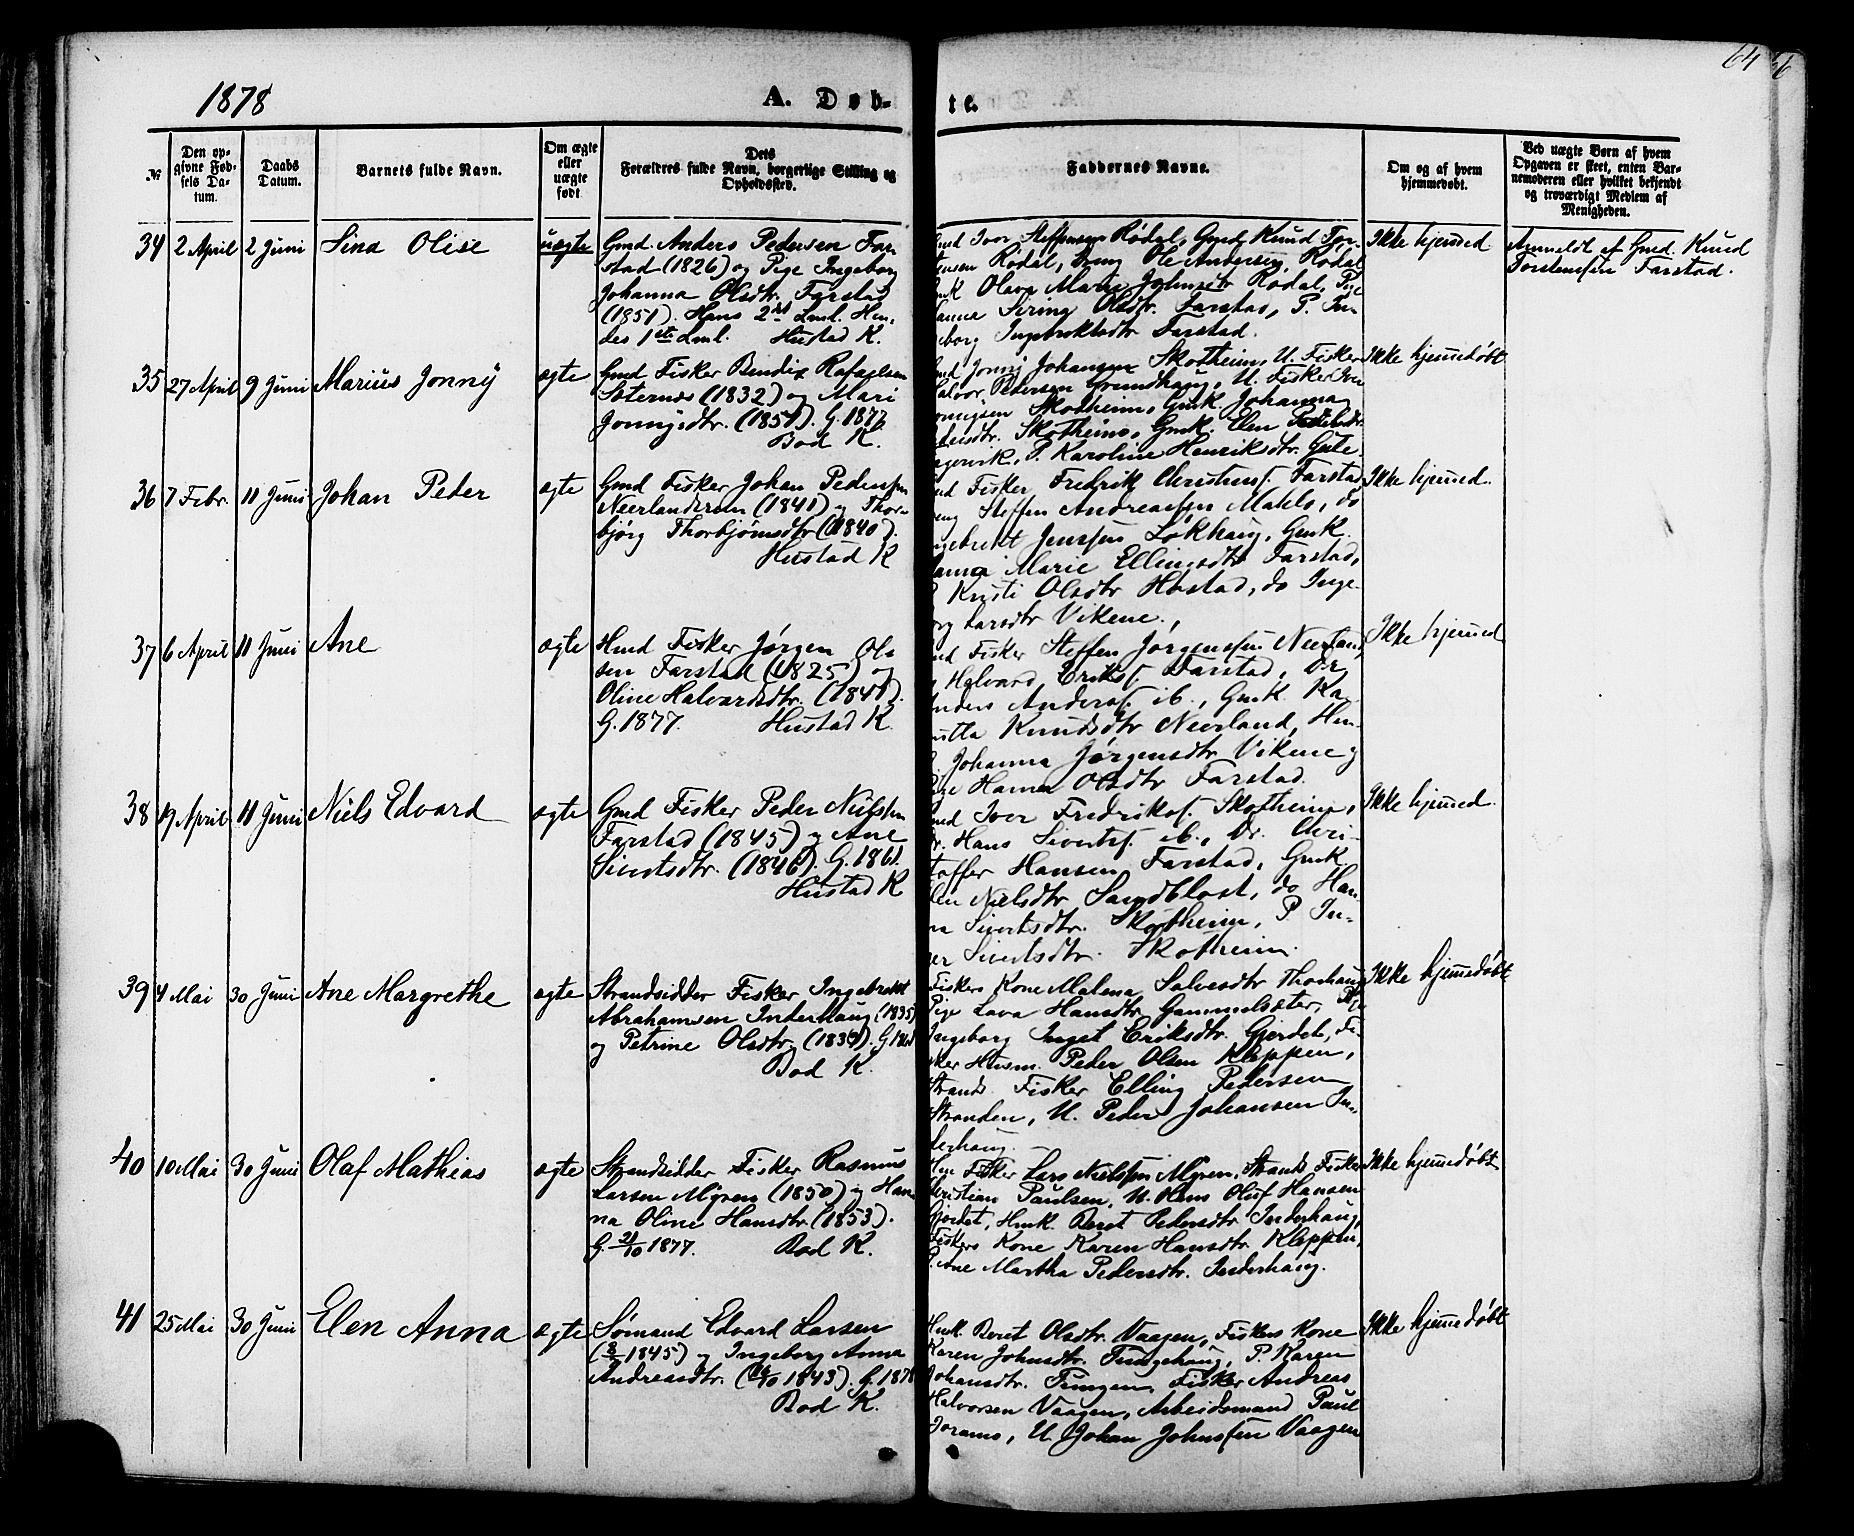 64 56
1878 A. Døb- te.
№
Den op-
givne Fød-
sels Da-
tum.
Daabs
Datum.
Barnets fulde Navn.
Om ægte
eller
uægte
født.
Dets
Forældres fulde Navn, borgerlige Stilling og
Opholdssted.
Faddernes Navne.
Om og af hvem
hjemmedøbt.
Ved uægte Børn af hvem
Opgaven er skeet, enten Bar-
nemoderen eller hvilket bekjendt
og troværdigt Medlem af
Menigheden.
34 2 April 2 Juni Lina Olise uægte
Gmd. Anders Pedersen Far-
stad (1826) og Pige Ingeborg
Johanna Olsdtr. Farstad
(1851). Hans 2det Lml. Hen-
des 1ste Lml. Hustad K.
Gmd Iver Steffensen Rødal, Gmd Knud Tor-
stensen Rødal, Ung Ole Andersen Rødal
Gmk Olava Marie Johnsdtr Rødal, Pige
Hanna Siring Olsdtr. Farstad, P. In-
geborg Ingebriktsdtr Farstad.
Ikke hjemmed.
Anmeldt af Gmd. Knud
Torstensen Farstad.
35 27 April 9 Juni Marius Jonny ægte
Gmd Fisker Bendix Rafaelsen
Sæternes (1832) og Mari
Jonnysdtr. (1851). G. 1877
Bod K.
Gmd Jonny Johansen Skotheim, U. Fisker
Halvor Pedersen Grundhaug, U. Fisker Iver
Jonnysen Skotheim, Gmk. Johanna
Skotheim, Gmk. Elen
P. Karoline Henriksdtr. Gule
Ikke hjemmedøbt
36 7 Febr. 11 Juni Johan Peder ægte
Gmd Fisker Johan Pedersen
Neerlandsrem (1841) og Thor-
bjørg Thorbjørnsdtr (1840).
Hustad K
Gmd Fisker Fredrik Christensf. Farstad
Steffen Andreassen Mahlo, do
Ingebrikt Jenssen Løkhaug, Gmk.
Hanna Marie Ellingsdtr Farstad,
P Kristi Olsdtr Hostad, do Inge-
borg Larsdtr Vikene.
Ikke hjemmed.
37 6 April 11 Juni Ane ægte
Hmd Fisker Jørgen Ol-
sen Farstad (1825) og
Oline Halvardsdtr. (1841).
G. 1877. Hustad K
Gmd Fisker Steffen Jørgensen Neerland,
Halvard Eriksf. Farstad, Dr.
Anders Andersf. ib., Gmk. Ka-
Knudsdtr Neerland, Hm-
k. Johanna Jørgensdtr Vikene og
Pige Hanna Olsdtr Farstad.
Ikke hjemmed
38 19 April 11 Juni Niels Edvard ægte
Gmd Fisker Peder Nielsen
Farstad (1845) og Ane
Sivertsdtr. (1846). G. 1861.
Hustad K
Gmd Iver Fredriksf. Skotheim,
Dr. Hans Sivertsf. ib., Dr. Chri-
stoffer Hansen Farstad, Gmk.
Elen Nielsdtr Sandblost, do Han-
na Sivertsdtr. Skotheim, P In-
ger Sivertsdtr. Skotheim.
Ikke hjemmed.
39 4 Mai 30 Juni Ane Margrethe ægte
Strandsidder Fisker Ingebrikt
Abrahamsen Inderhaug (1835)
og Petrine Olsdtr (1839). G. 1861
Bod K.
Fiskers Kone Malena Salvesdtr Thorhaug
Pige Lava Hansdtr Gammelsæter, Pige
Ingeborg Inget Eriksdtr. Gjerdet, Fi-
sker Husm. Peder Olsen Kleppen,
Strands. Fisker Elling Pedersen
Stranden, U. Peder Johansen In-
derhaug
Ikke hjemmedøbt
40 10 Mai 30 Juni Olaf Mathias ægte
Strandsidder Fisker Rasmus
Larsen Myren (1850) og Han-
na Oline Hansdtr. (1853).
G. 21/10 1877. Bod K.
Hm Fisker Lars Nielssen Myren, Strands. Fisker
Christian Paulsen, U. Hans Oluf Hansen
Gjerdet, Hmk. Beret Pedersdtr Inderhaug,
Fiskers Kone Karen Hansdtr. Kleppen,
Pigerne Martha Pedersdtr. Inderhaug.
Ikke hjemmedøbt
41 25 Mai 30 Juni Elen Anna ægte
Sømand Edvard Larsen
1845) og Ingeborg Anna
Andreasdtr. 1843). G. 1878
Bod K.
Hmk. Beret Olsdtr. Vaagen, Fiskers Kone
Karen Johnsdtr. Tungehaug, P. Karen
Johansdtr. Tungen, Fisker Andreas
Halvorsen Vaagen, Arbeidsmand Paul
U. Johan Johnssen Vaagen
Ikke hjemmedøbt